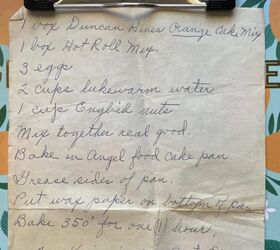 1 box Duncan Hines Orange Cake Mix
1 box Hot Roll Mix.
3 eggs
2 cups lukewarm water
1 cup English nuts
Mix together real good.
Bake in Angel food cake pan
Grease sides of pan.
Put wax paper on bottom of pan
Bake 350° for one (1) hour,